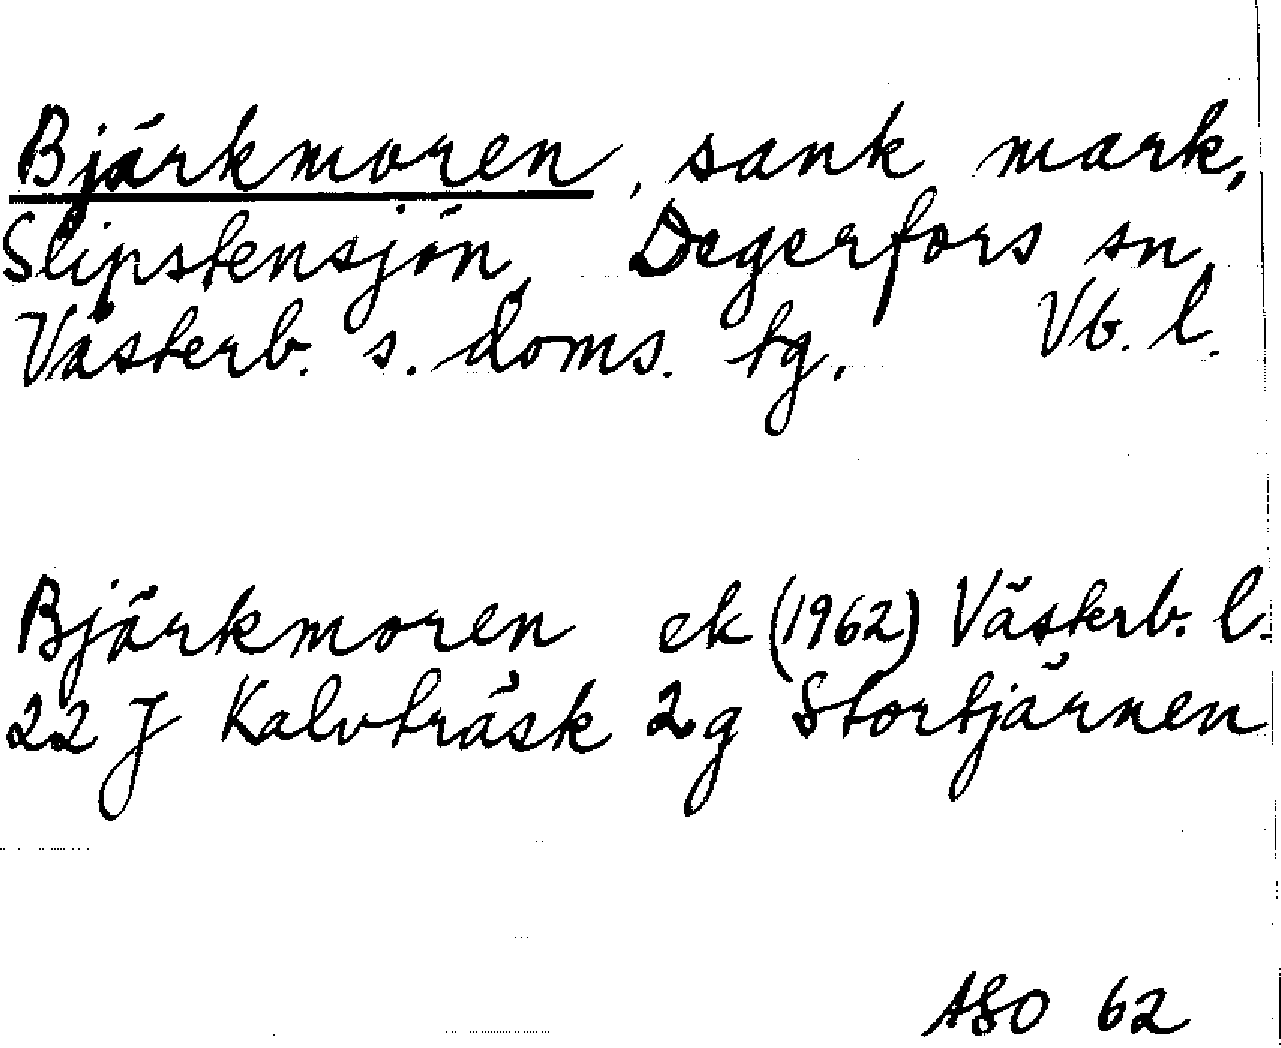 Bjärkmoren, sank mark,
Slipstensjön, Degerfors sn,
Västerb. s. doms. tg. Vb. l.
Bjärkmoren ek (1962) Västerb. l.
22 J Kalvträsk 2g Stortjärnen
ASO 62